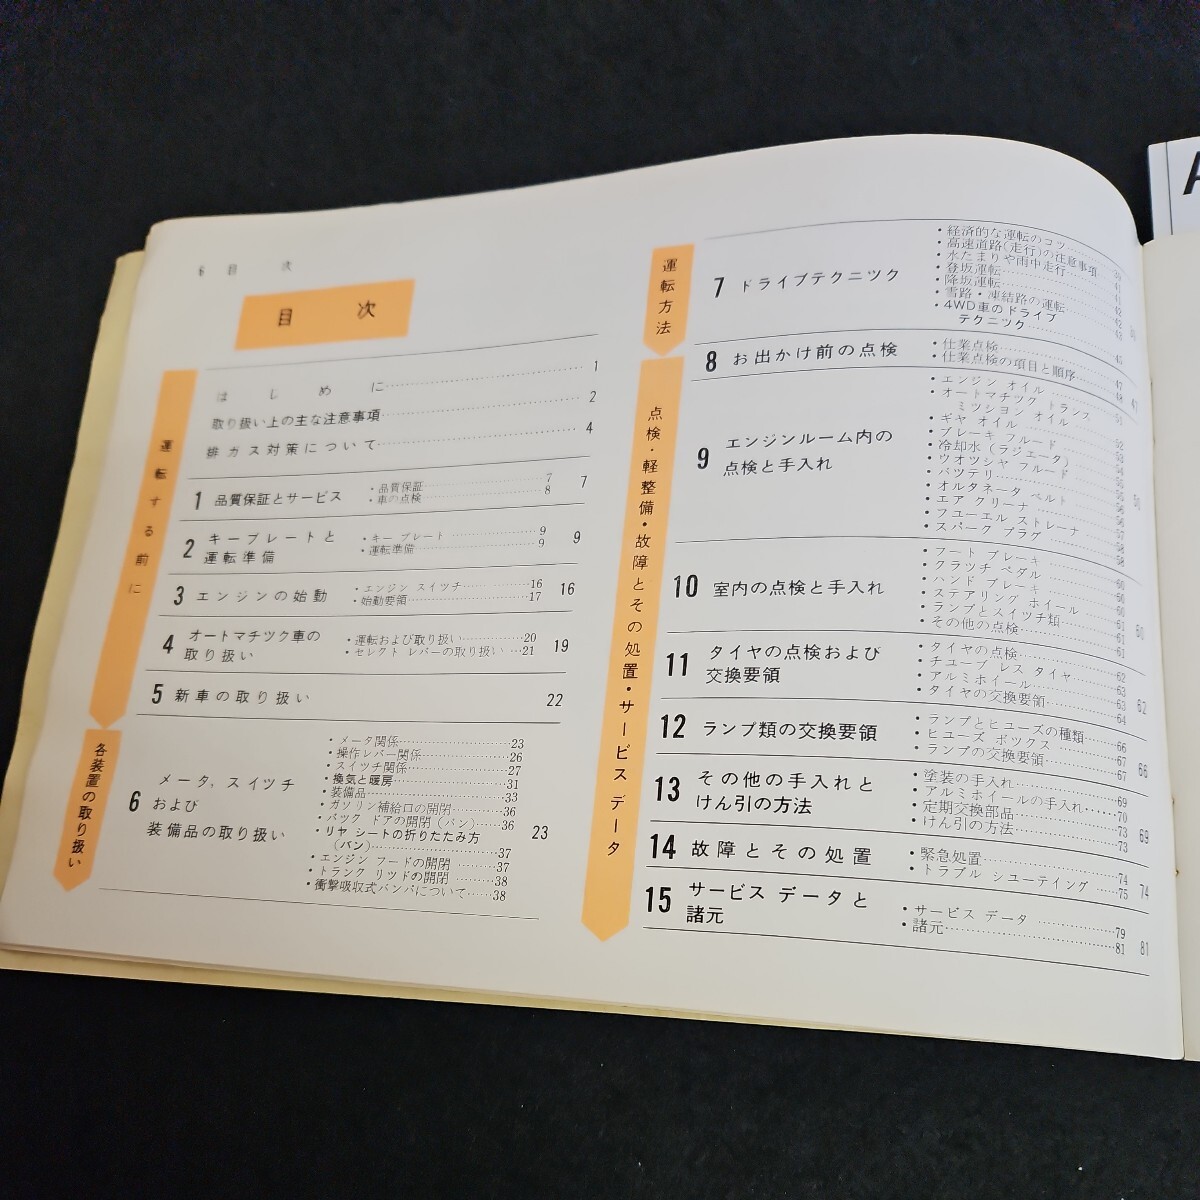 6 目 次
目 次
運転する前に
は し め に 1
取り扱い上の主な注意事項 2
排ガス対策について 4
1 品質保証とサービス 7
・品質保証 7
・車の点検 8
2 キープレートと
運転準備 9
・キー プレート 9
・運転準備 9
3 エンジンの始動 16
・エンジン スイツチ 16
・始動要領 17
4 オートマチツク車の
取り扱い 19
・運転および取り扱い 20
・セレクト レバーの取り扱い 21
5 新車の取り扱い 22
各装置の取り扱い
6 メータ,スイツチ
および
装備品の取り扱い 23
・メータ関係 23
・操作レバー関係 26
・スイツチ関係 27
・換気と暖房 31
・装備品 33
・ガソリン補給口の開閉 36
・バツク ドアの開閉(バン) 36
・リヤ シートの折りたたみ方
(バン) 37
・エンジン フードの開閉 37
・トランク リツドの開閉 38
・衝撃吸収式バンパについて 38
運転方法
7 ドライブテクニツク
・経済的な運転のコツ
・高速道路(走行)の注意事項
・水たまりや雨中走行
・登坂運転
・降坂運転
・雪路・凍結路の運転
・4WD車のドライブ
テクニツク
点検・軽整備・故障とその処置・サービス データ
8 お出かけ前の点検 47
・仕業点検 47
・仕業点検の項目と順序 48
9 エンジンルーム内の
点検と手入れ 50
・エンジン オイル 51
・オートマチツク トランス
ミツシヨン オイル 52
・ギヤ オイル
・ブレーキ フルード
・冷却水(ラジエータ)
・ウオツシヤ フルード
・バツテリ
・オルタネータ ベルト
・エア クリーナ
・フユーエル ストレーナ
・スパーク プラグ 58
10 室内の点検と手入れ 60
・フート ブレーキ 60
・クラツチ ペダル 60
・ハンド ブレーキ 60
・ステアリング ホイール 60
・ランプとスイツチ類 61
・その他の点検 61
11 タイヤの点検および
交換要領 62
・タイヤの点検 62
・チユーブ レス タイヤ 63
・アルミホイール 63
・タイヤの交換要領 64
12 ランプ類の交換要領 66
・ランプとヒユーズの種類 66
・ヒユーズ ボツクス 67
・ランプの交換要領 67
13 その他の手入れと
けん引の方法 69
・塗装の手入れ 69
・アルミホイールの手入れ 70
・定期交換部品 73
・けん引の方法 73
14 故障とその処置 74
・緊急処置 74
・トラブル シユーテイング 75
15 サービス データと
諸元 81
・サービス データ 79
・諸元 81
A